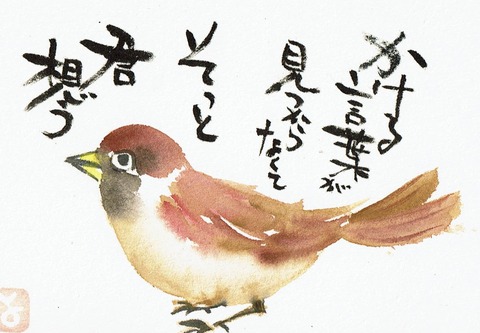 かける
言葉が
見つからなくて
そっと
君
想う